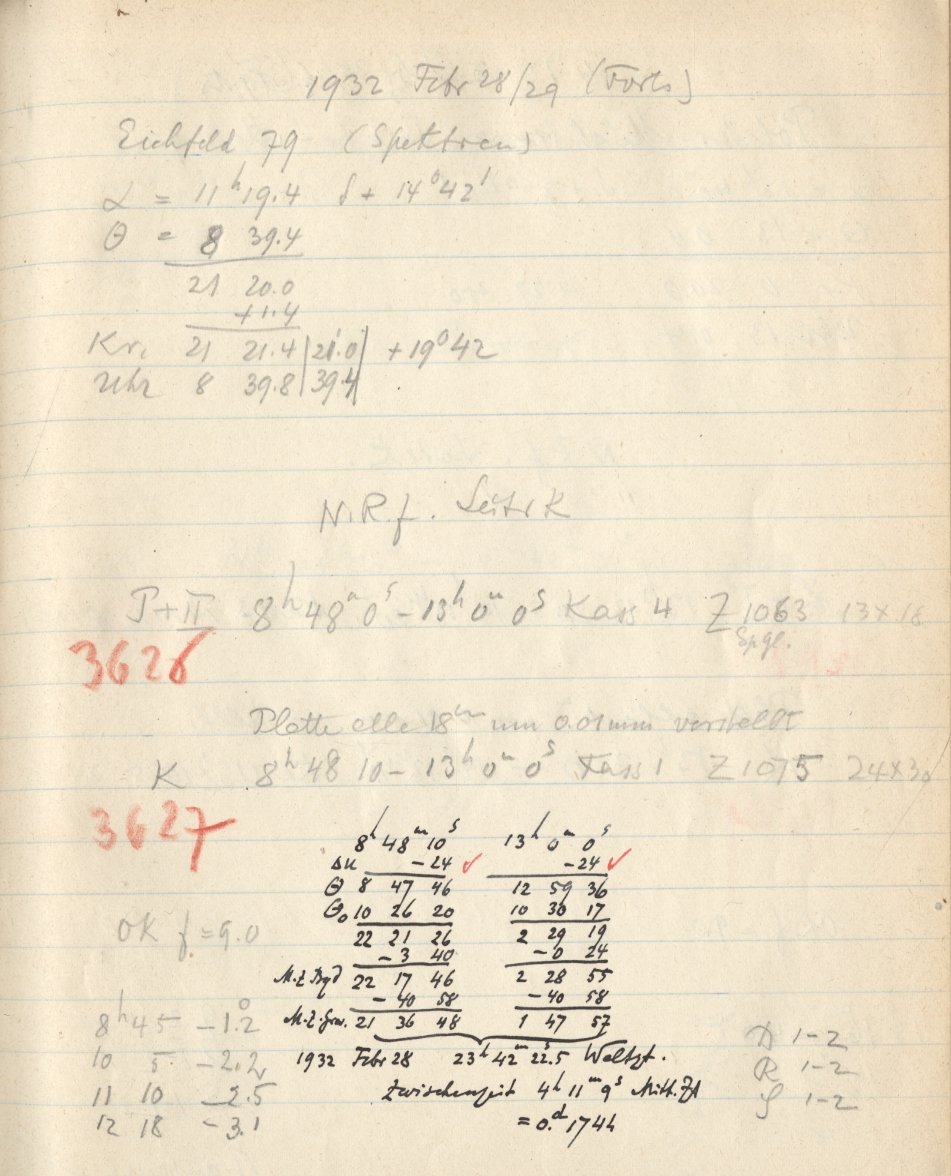 1932 Febr 28/29 (Forts)
Eichfeld 79 (Spektren)
α = 11ʰ19.4 δ + 14°42'
θ = 8 39.4
21 20.0
+1.4
Kr. 21 21.4 | 21.0 | +19°42
Uhr 8 39.8 | 39.4 |
N.R.f. Leitr K
I+II 8ʰ48ᵐ0ˢ – 13ʰ0ᵐ0ˢ Kass 4 Z 1063 13×18
Spgl.
3626
Platte alle 18ᵐ um 0.01mm verstellt
K 8ʰ48 10 – 13ʰ0ᵐ0ˢ Kass 1 Z 1075 24×30
3627
8ʰ48ᵐ10ˢ 13ʰ0ᵐ0ˢ
Δu –24 ✓ –24 ✓
θ 8 47 46 12 59 36
θ₀ 10 26 20 10 30 17
OK f = 9.0
22 21 26 2 29 19
–3 40 –0 24
M.Z.Bgd 22 17 46 2 28 55
–40 58 –40 58
M.Z.Grw. 21 36 48 1 47 57
1932 Febr 28 23ʰ42ᵐ22ˢ.5 Weltzt.
Zwischenzeit 4ʰ11ᵐ9ˢ Mittl. Zt
= 0.ᵈ1744
8ʰ45 –1.2°
10 5 –2.2
11 10 –2.5
12 18 –3.1
D 1–2
R 1–2
S 1–2